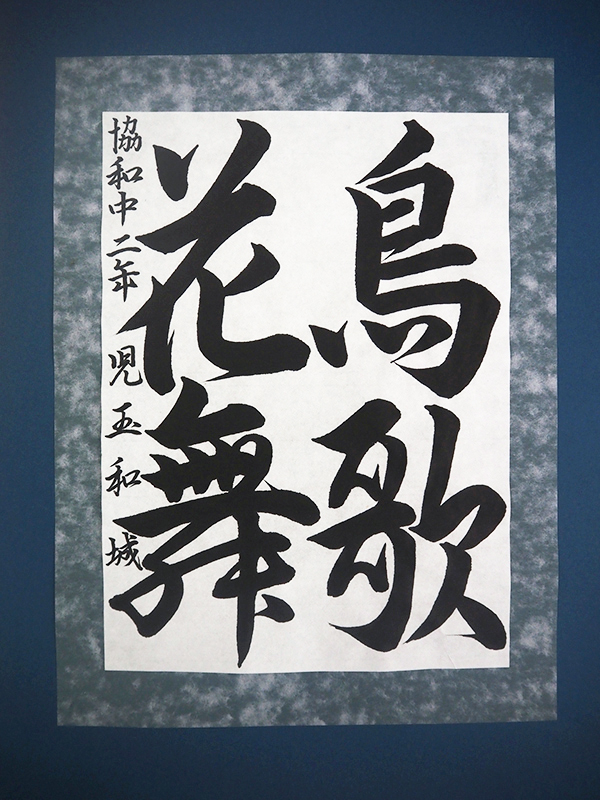 鳥歌
花舞
協和中二年 児玉和城